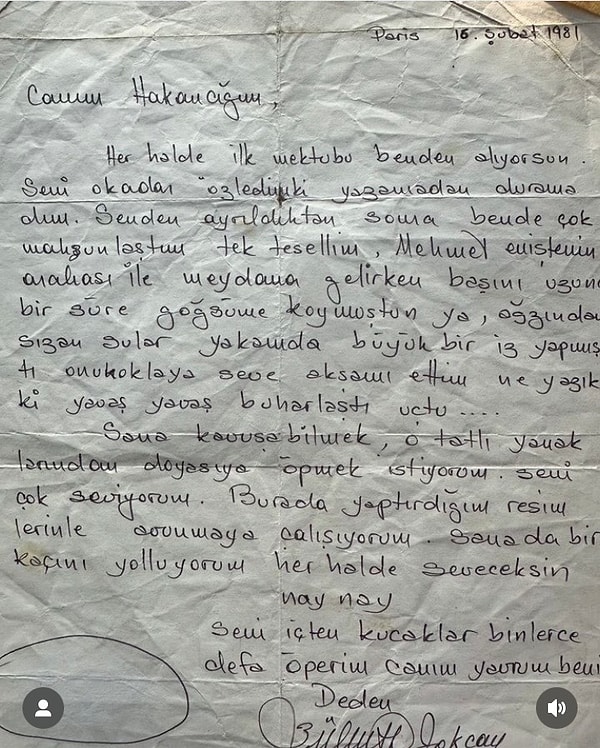 Paris 16. Şubat 1981
Canım Hakancığım,
Her halde ilk mektubu benden alıyorsun.
Seni okadar özledimki yazamadan durama
dım. Senden ayrıldıktan sonra bende çok
mahzunlaştım tek tesellim, Mehmet eniştenin
arabası ile meydana gelirken başını uzun
bir süre göğsüme koymuştun ya, ağzından
sızan sular yakamda büyük bir iz yapmış
tı onukoklaya seve akşamı ettim ne yazık
ki yavaş yavaş buharlaştı uçtu ....
Sana kavuşabilmek, o tatlı yanak
larından doyasıya öpmek istiyorum. seni
çok seviyorum. Burada yaptırdığım resim
lerinle avunmaya çalışıyorum. Sana da bir
kaçını yolluyorum her halde seveceksin
nay nay
Seni içten kucaklar binlerce
defa öperim canım yavrum beni
Deden